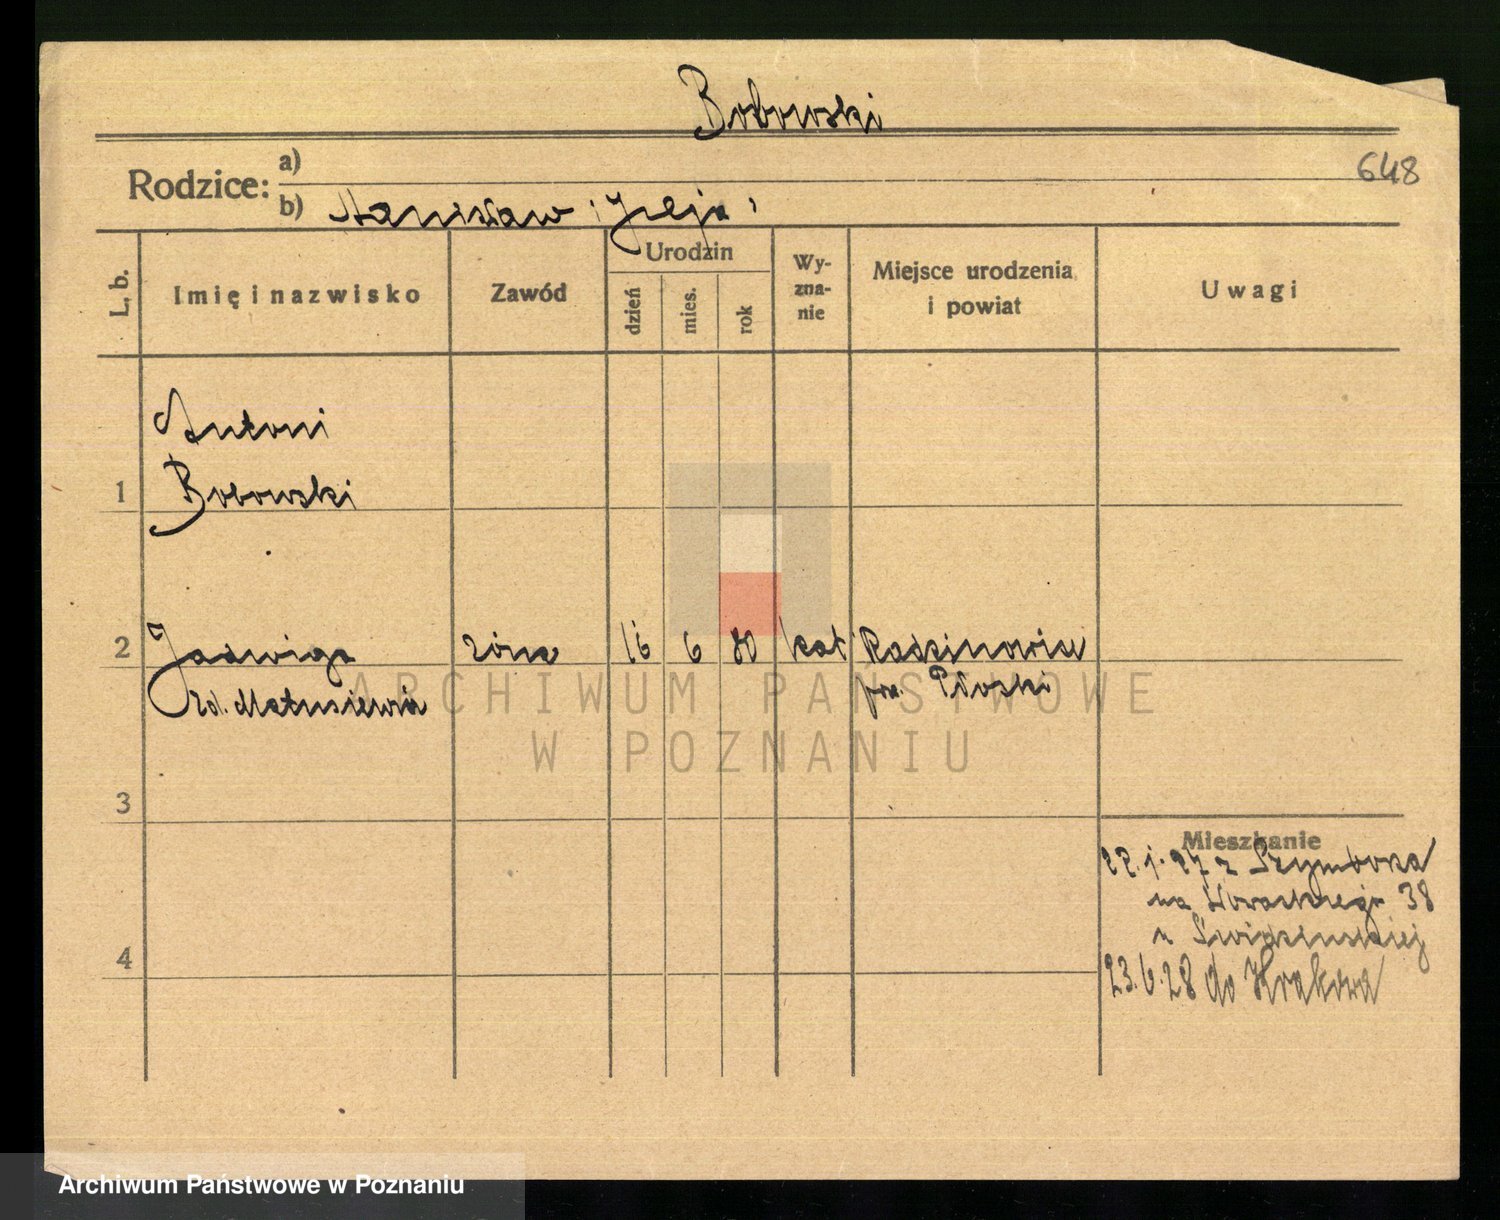 Bobowski
648
Rodzice:
a)
b) Stanisław i Julja
L. b.
Imię i nazwisko
Zawód
Urodzin
dzień
mies.
rok
Wy-
zna-
nie
Miejsce urodzenia
i powiat
Uwagi
Antoni
1 Bobowski
2 Jadwiga żona 16 6 80 kat
zd. Matusiewicz pow. Płoski
3
Mieszkanie
22.1.27 z Szymborza
na 38
4
23.6.28 do Krakowa
ARCHIWUM PAŃSTWOWE
W POZNANIU
Archiwum Państwowe w Poznaniu